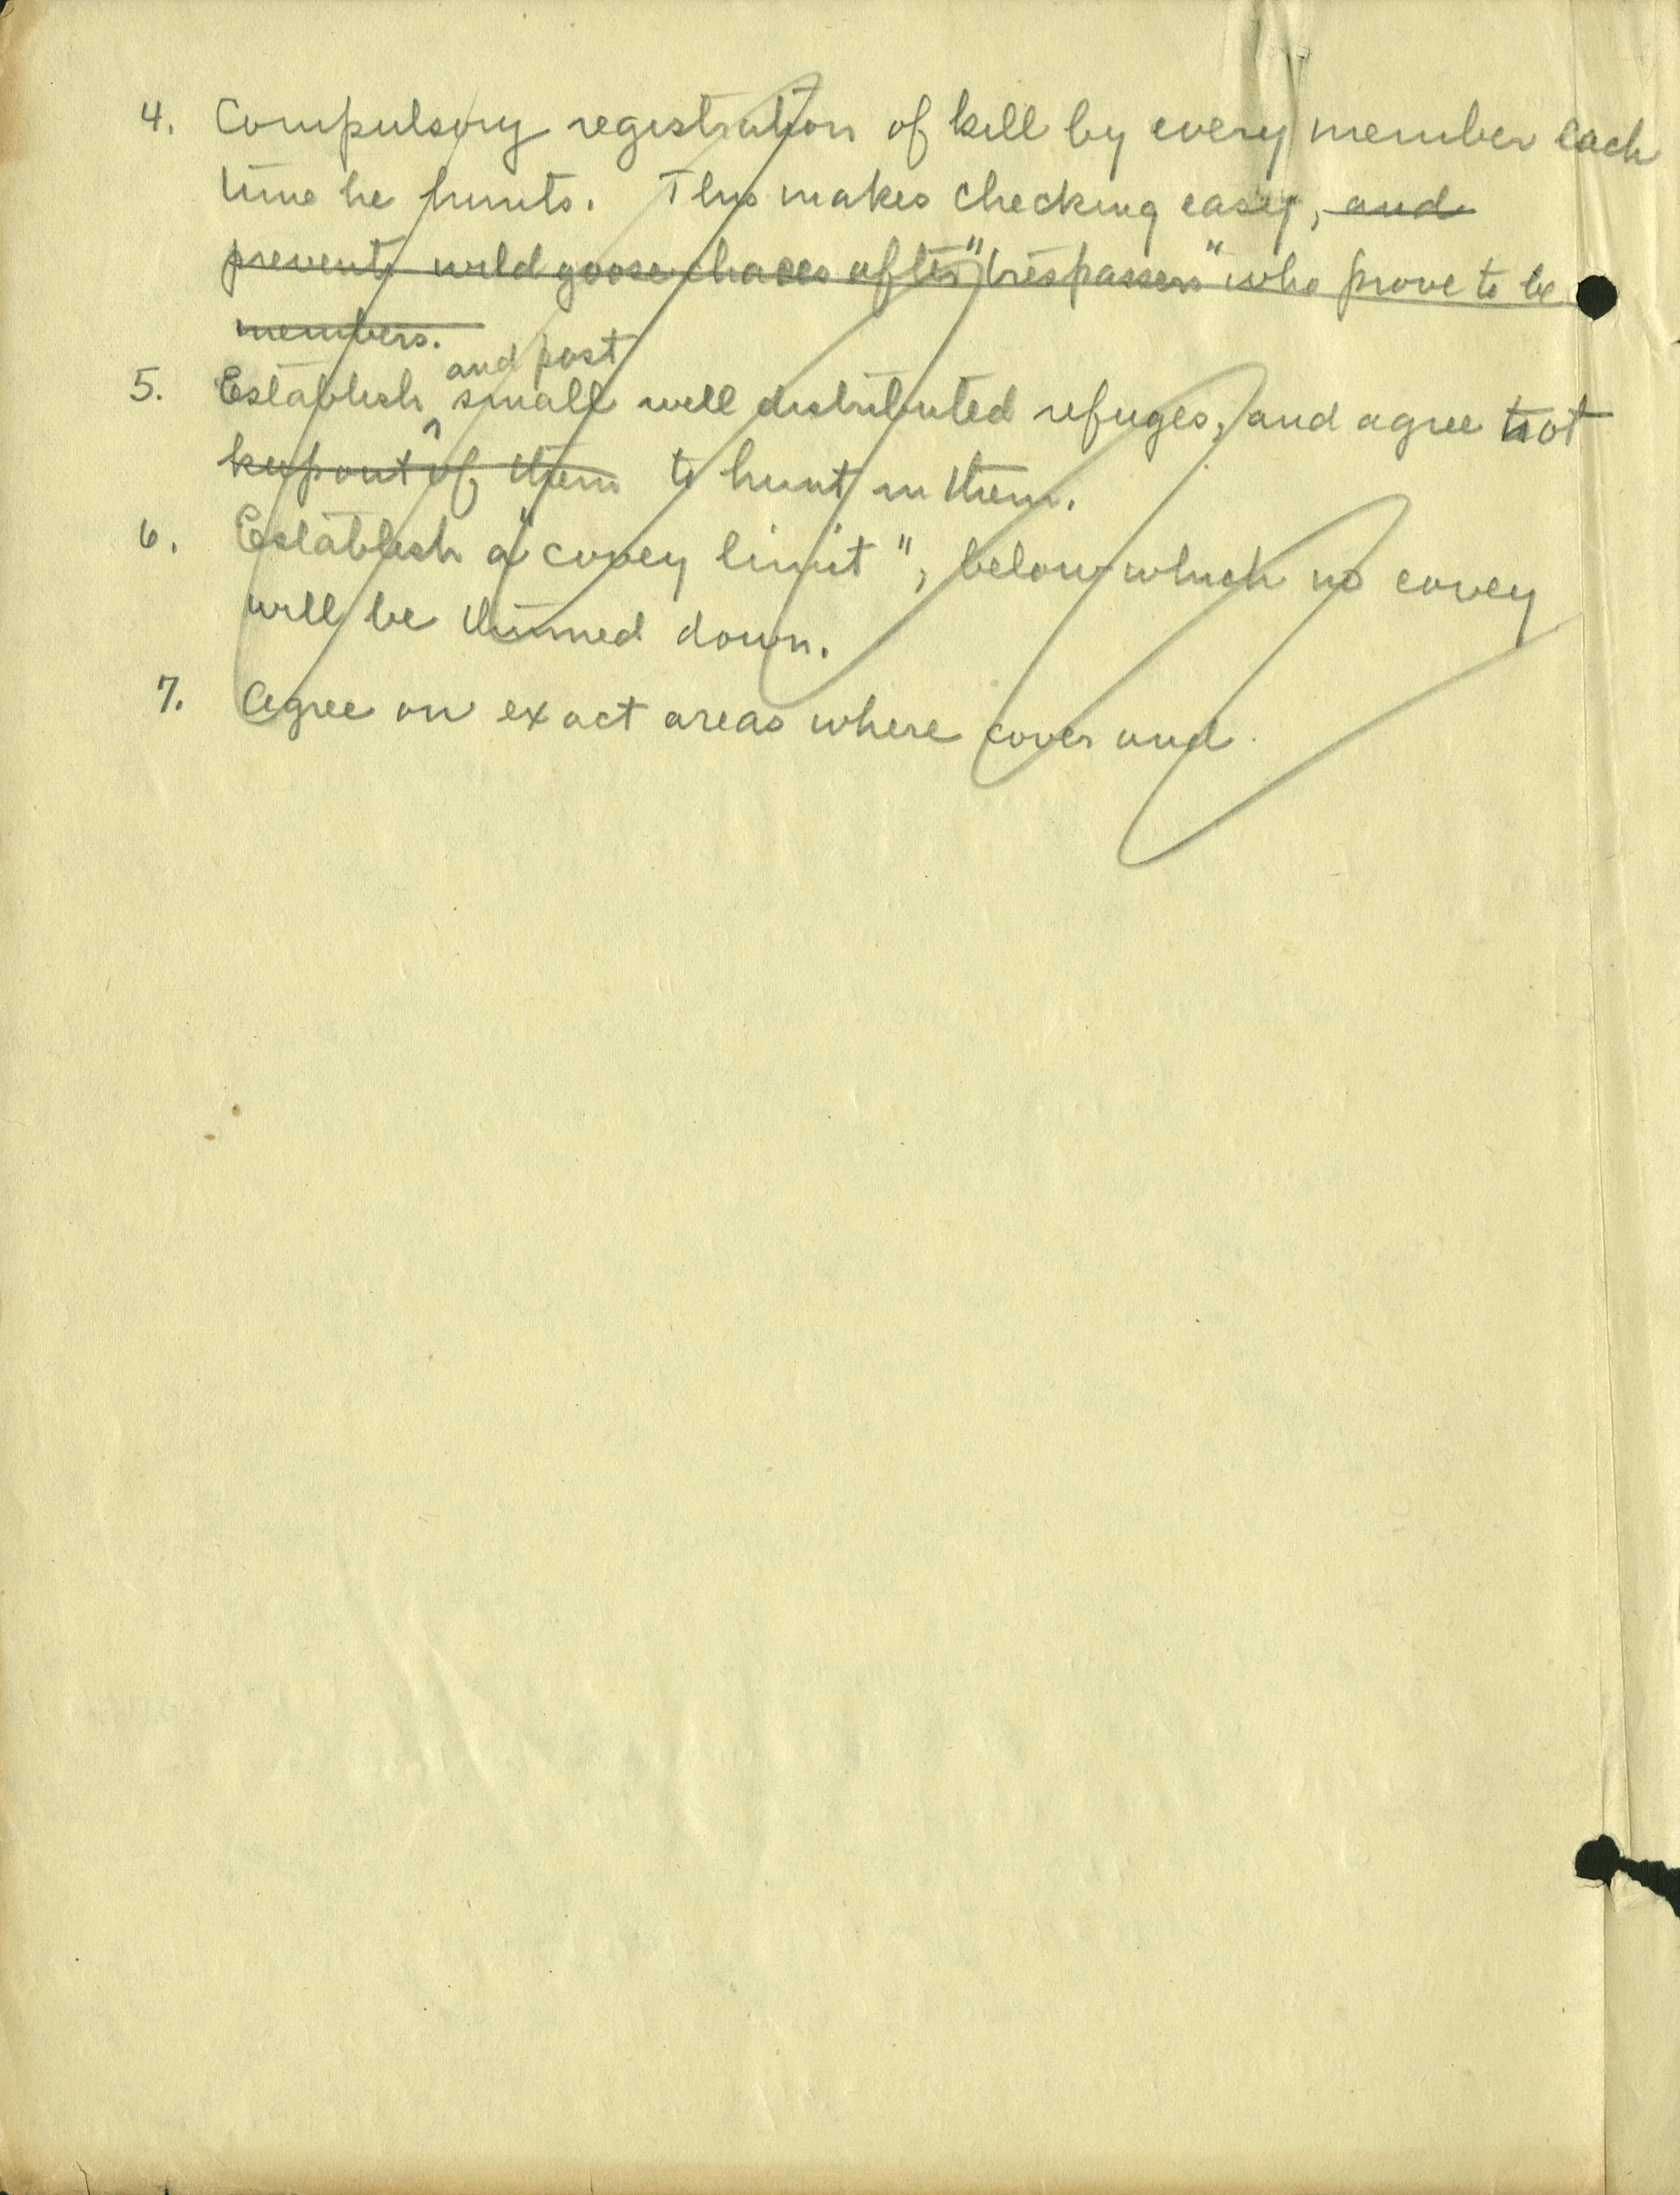 4. Compulsory registration of kill by every member each
time he hunts. This makes checking easy, and
prevents wild goose chases after "trespassers" who prove to be
members.
and post
5. Establish ^ small well distributed refuges, and agree not
keep out of them to hunt in them.
6. Establish a "covey limit", below which no covey
will be thinned down.
7. Agree on exact areas where cover and